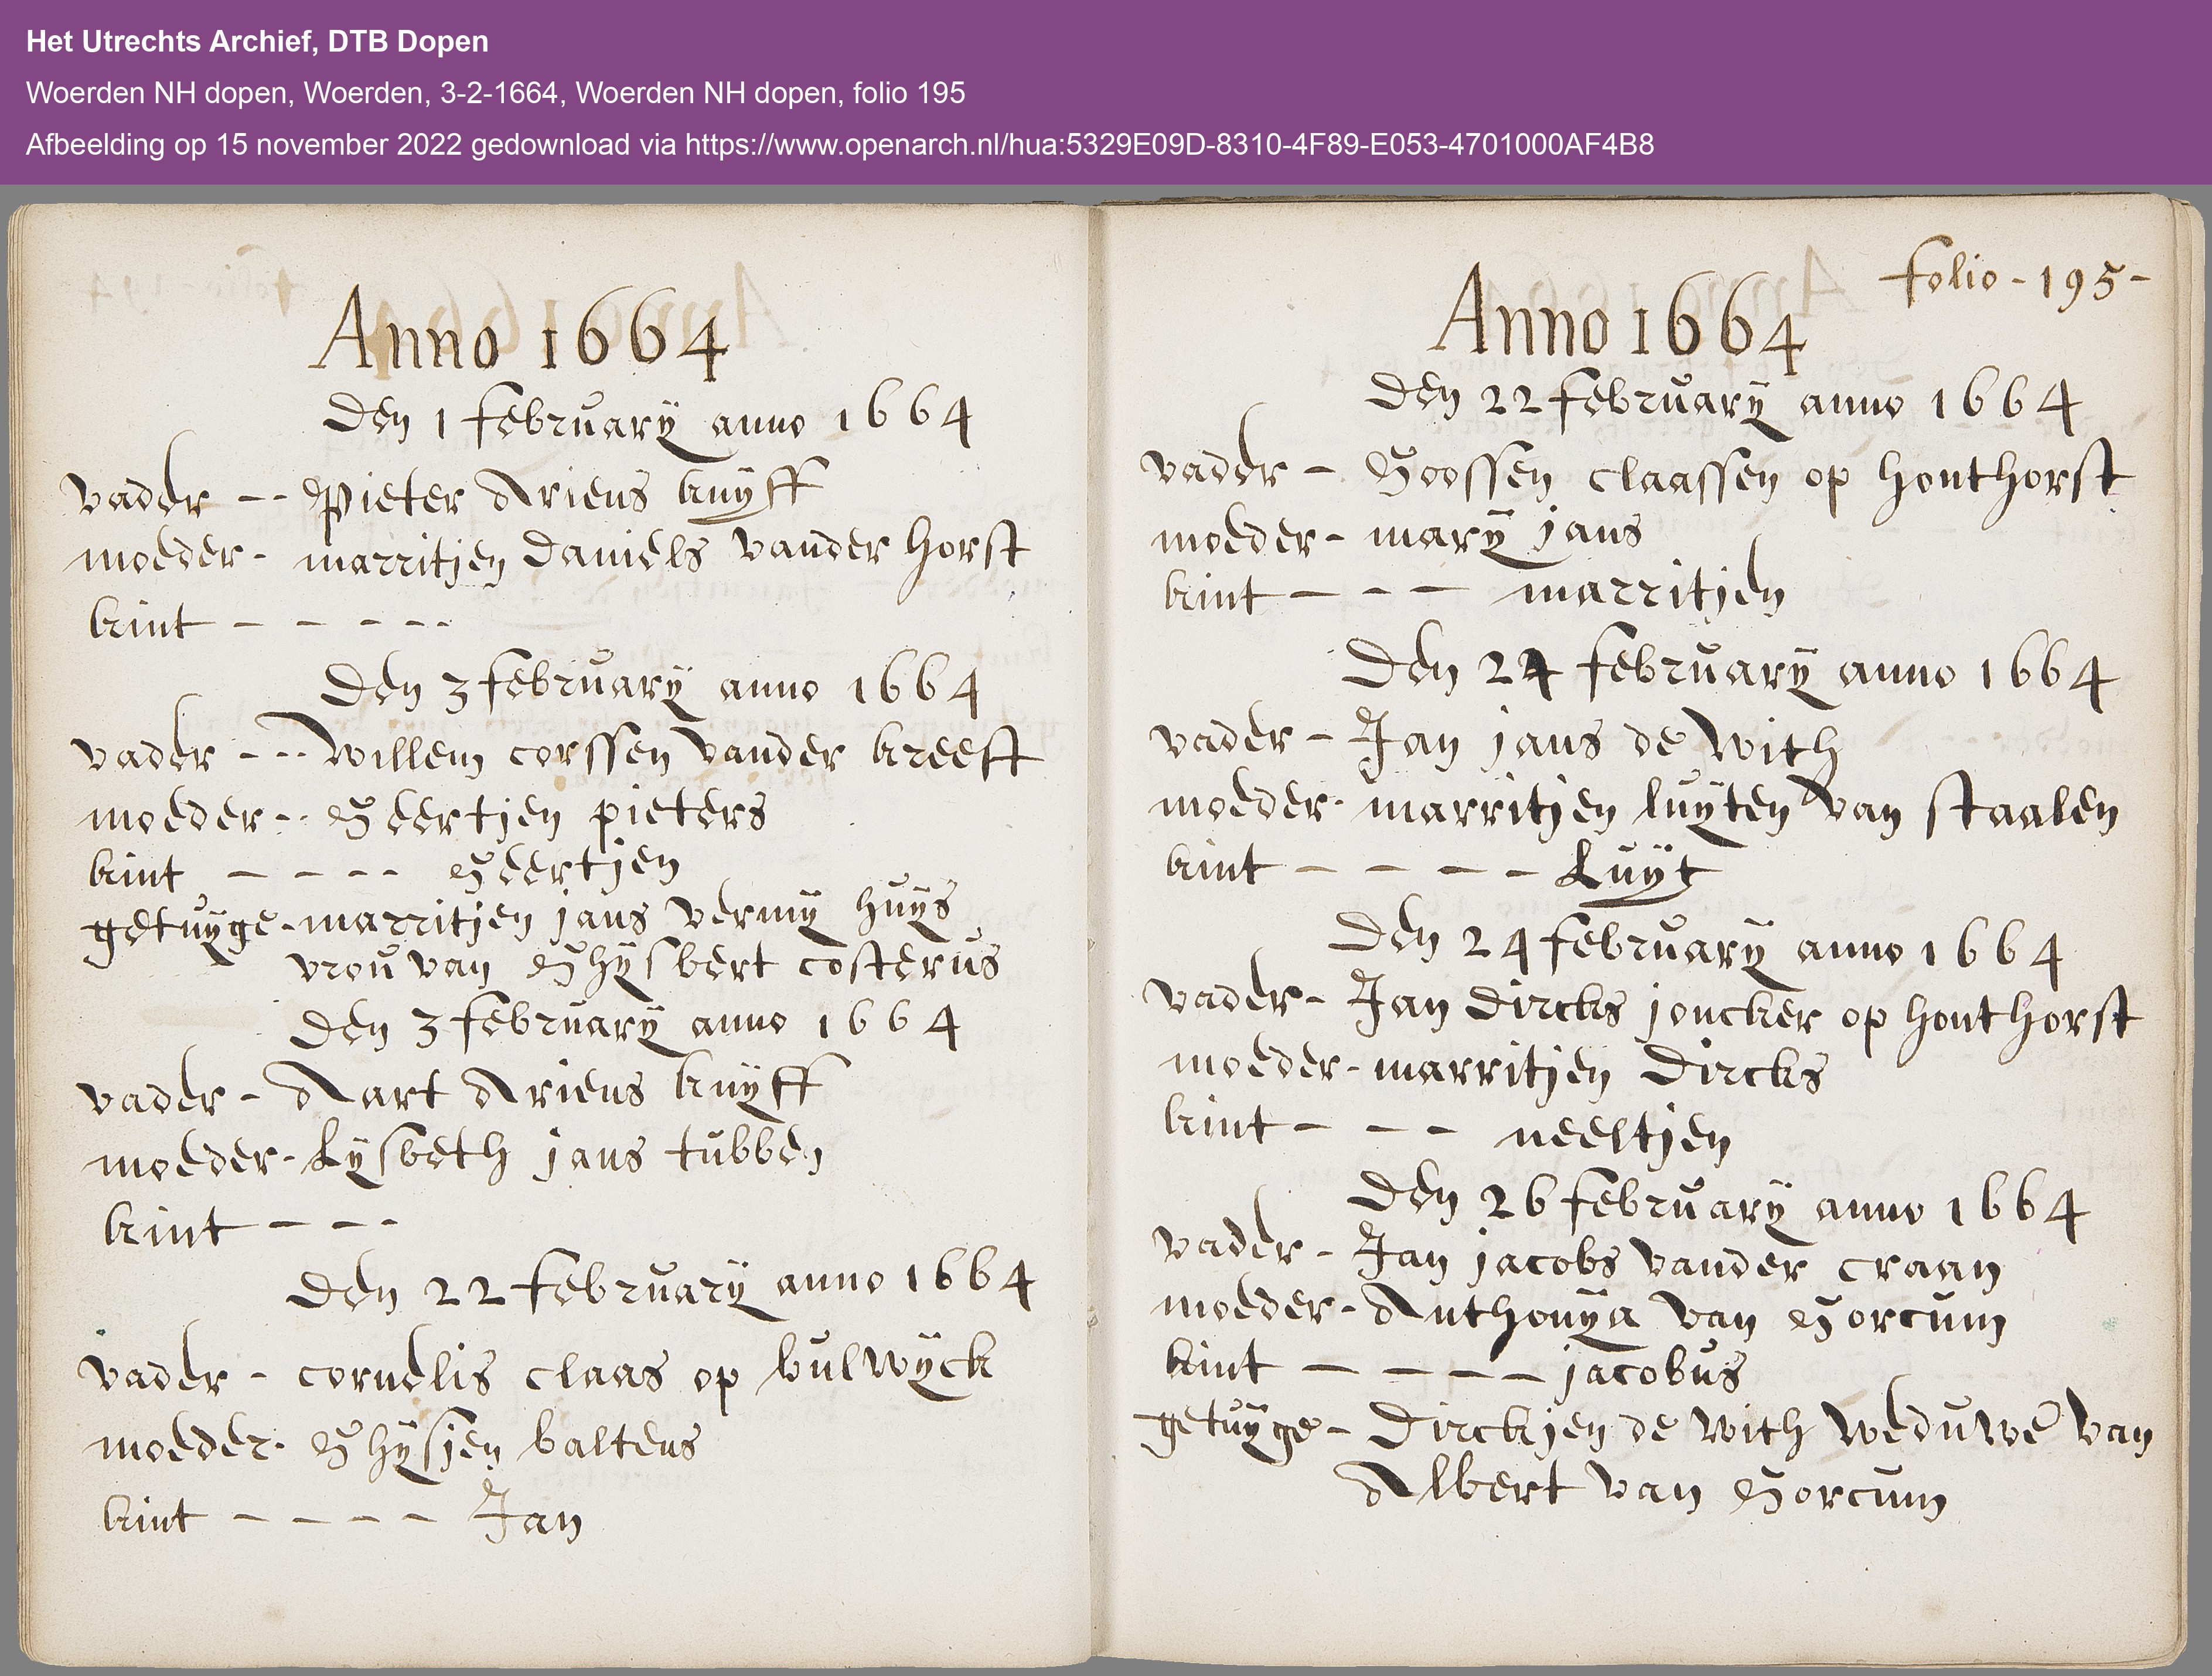 Het Utrechts Archief, DTB Dopen
Woerden NH dopen, Woerden, 3-2-1664, Woerden NH dopen, folio 195
Afbeelding op 15 november 2022 gedownload via https://www.openarch.nl/hua:5329E09D-8310-4F89-E053-4701000AF4B8
Anno 1664
Den 1 februarÿ anno 1664
vader -- Pieter Ariens kuÿff
moeder - marritjen Daniels vander horst
kint - - - - --
Den 3 februarÿ anno 1664
vader - -- willem corssen vander kreeft
moeder -- Geertjen pieters
kint - - - -- Geertjen
getuÿge - marritjen jans vermÿ huÿs
vrou van Ghÿsbert costerus
Den 3 februarÿ anno 1664
vader - Aart Ariens kuÿff
moeder - Lÿsbeth jans tubben
kint - - --
Den 22 februarÿ anno 1664
vader - cornelis claas op bulwÿck
moeder - Ghÿsjen baltens
kint - - - - - Jan
folio - 195 -
Anno 1664
Den 22 februarÿ anno 1664
vader - Goossen claassen op honthorst
moeder - marÿ jans
kint - - - marritjen
Den 24 februarÿ anno 1664
vader - Jan jans de with
moeder - marritjen luÿten van staalen
kint - - - - - Luÿt
Den 24 februarÿ anno 1664
vader - Jan Dircks joncker op honthorst
moeder - marritjen Dircks
kint - - - neeltjen
Den 26 februarÿ anno 1664
vader - Jan jacobs vander craan
moeder - Anthonÿa van Gorcum
kint - - - - - jacobus
getuÿge - Dirckjen de with weduwe van
Albert van Gorcum